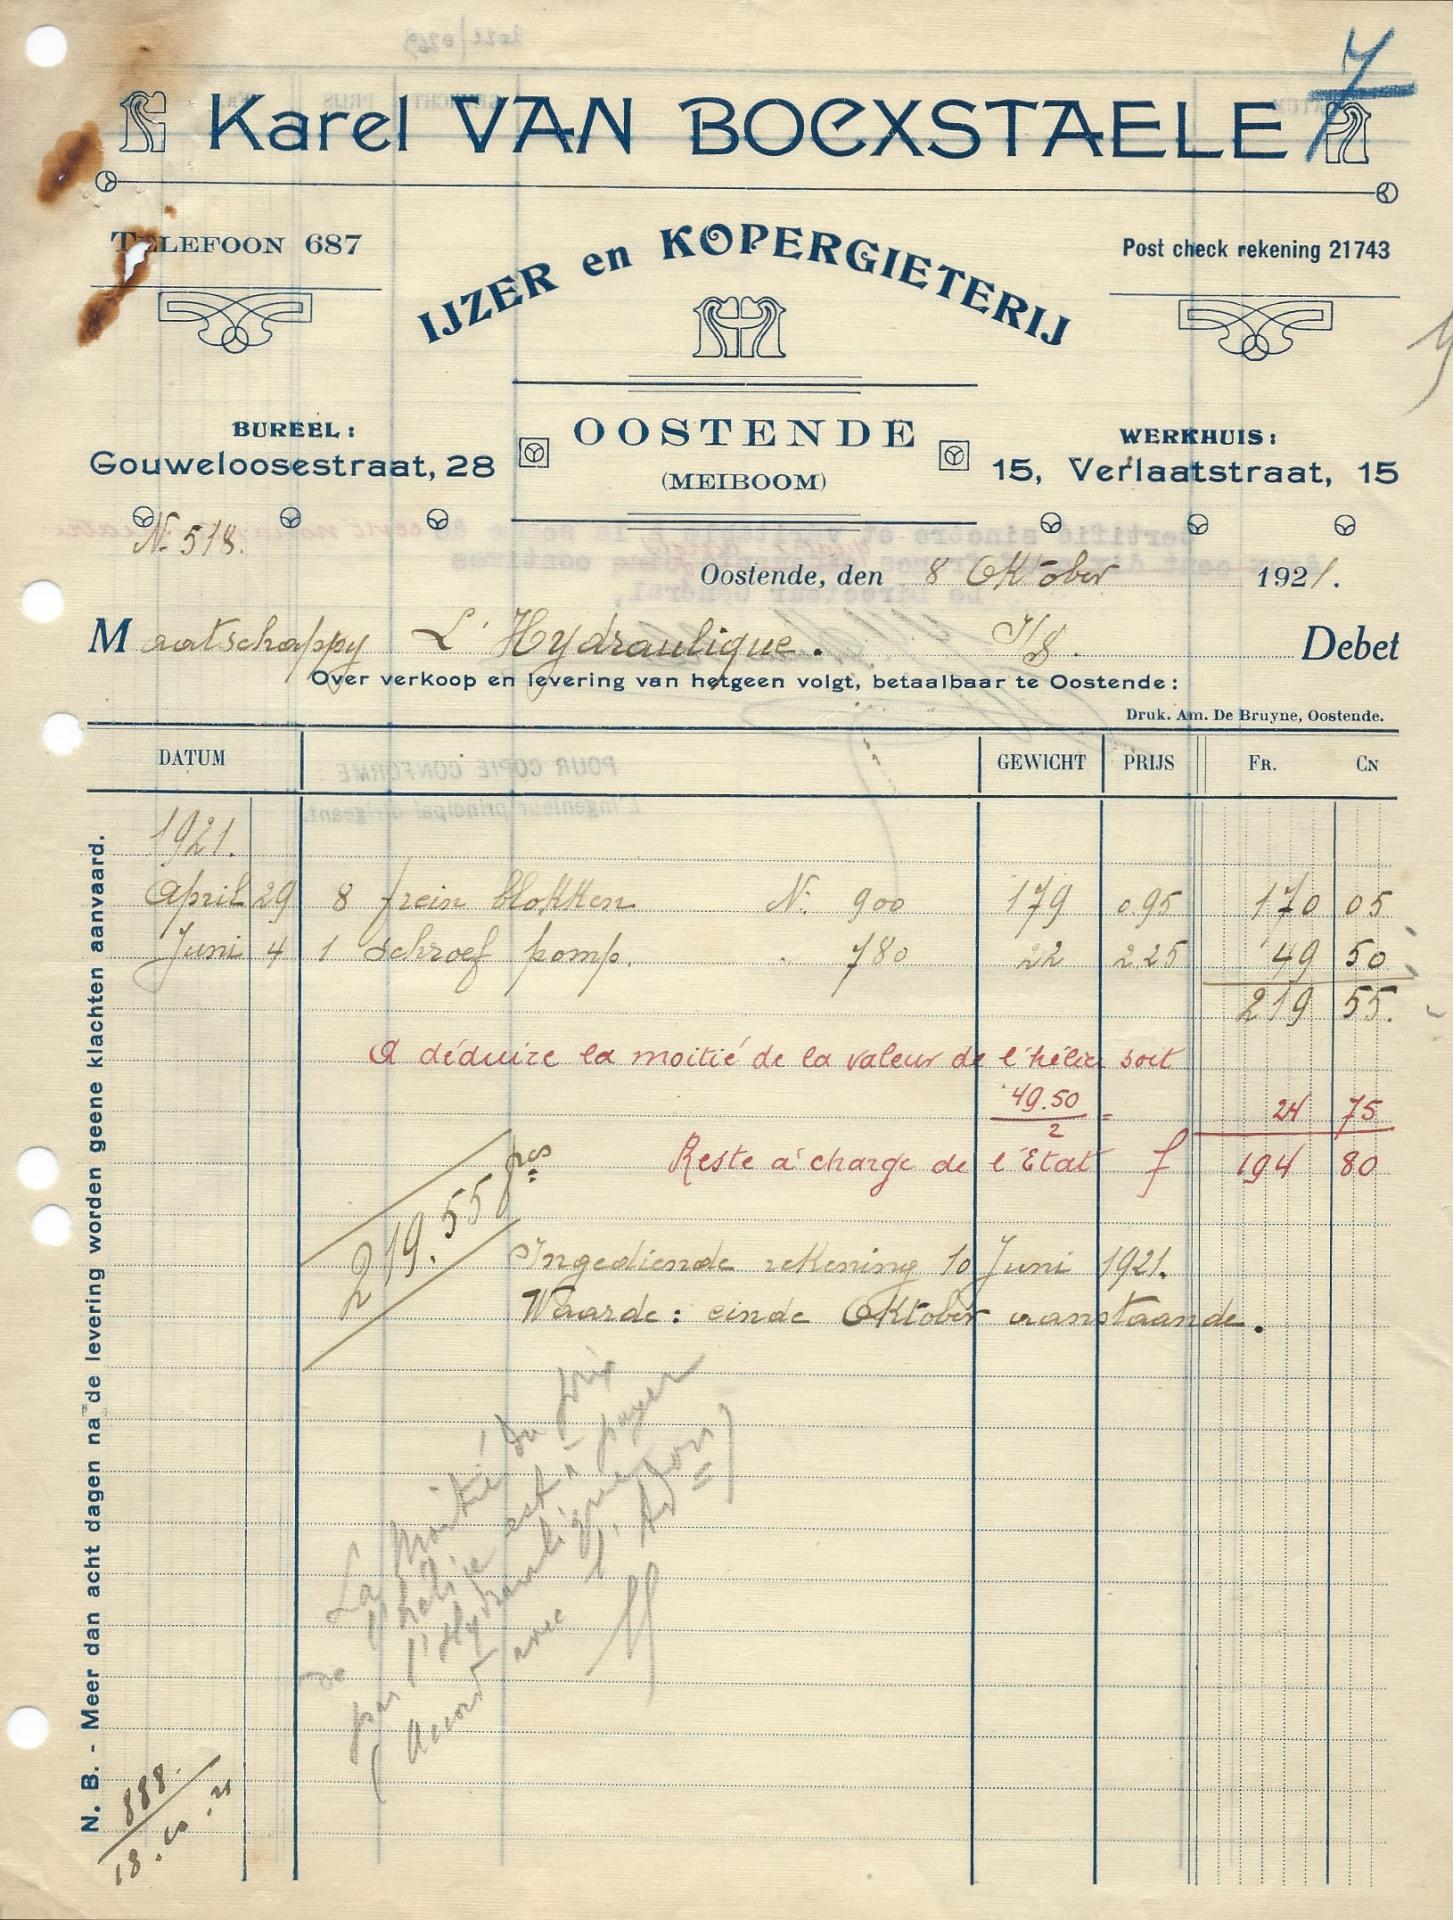 7
Karel VAN BOEXSTAELE
TELEFOON 687
IJZER en KOPERGIETERIJ
Post check rekening 21743
BUREEL:
Gouweloosestraat, 28
OOSTENDE
(MEIBOOM)
WERKHUIS:
15, Verlaatstraat, 15
N. 518.
Oostende, den 8 Oktober 1921.
Maatschappy L'Hydraulique. Debet
Over verkoop en levering van hetgeen volgt, betaalbaar te Oostende:
Druk. Am. De Bruyne, Oostende.
DATUM GEWICHT PRIJS FR. CN
1921.
April 29 8 frein blokken N. 900 179 0.95 170 05
Juni 4 1 schroef pomp. " 780 22 2.25 49 50
219 55.
A déduire la moitié de la valeur de l'hélice soit
49.50
2 = 24 75
Reste à charge de l'Etat f 194 80
219.55 frcs
Ingediende rekening 10 Juni 1921.
Waarde: einde Oktober aanstaande.
La moitié du prix
de l'hélice est à payer
par l'Hydraulique
(Accord avec l'Adon)
N. B. - Meer dan acht dagen na de levering worden geene klachten aanvaard.
888.
18.10.21